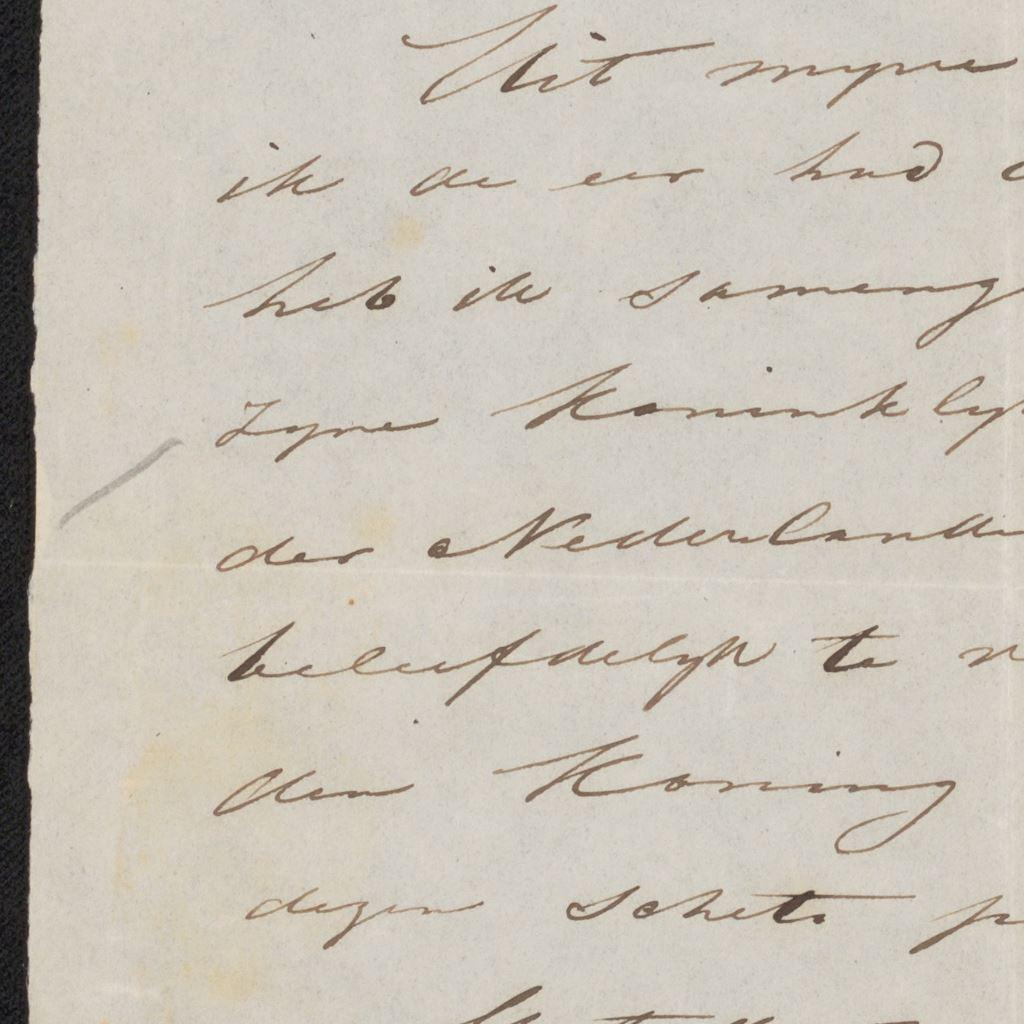 Uit myne
ik de eer had
heb ik sameng
Zyne Koninkly
der Nederlande
beleefdelyk te
den Koning
dezen schets